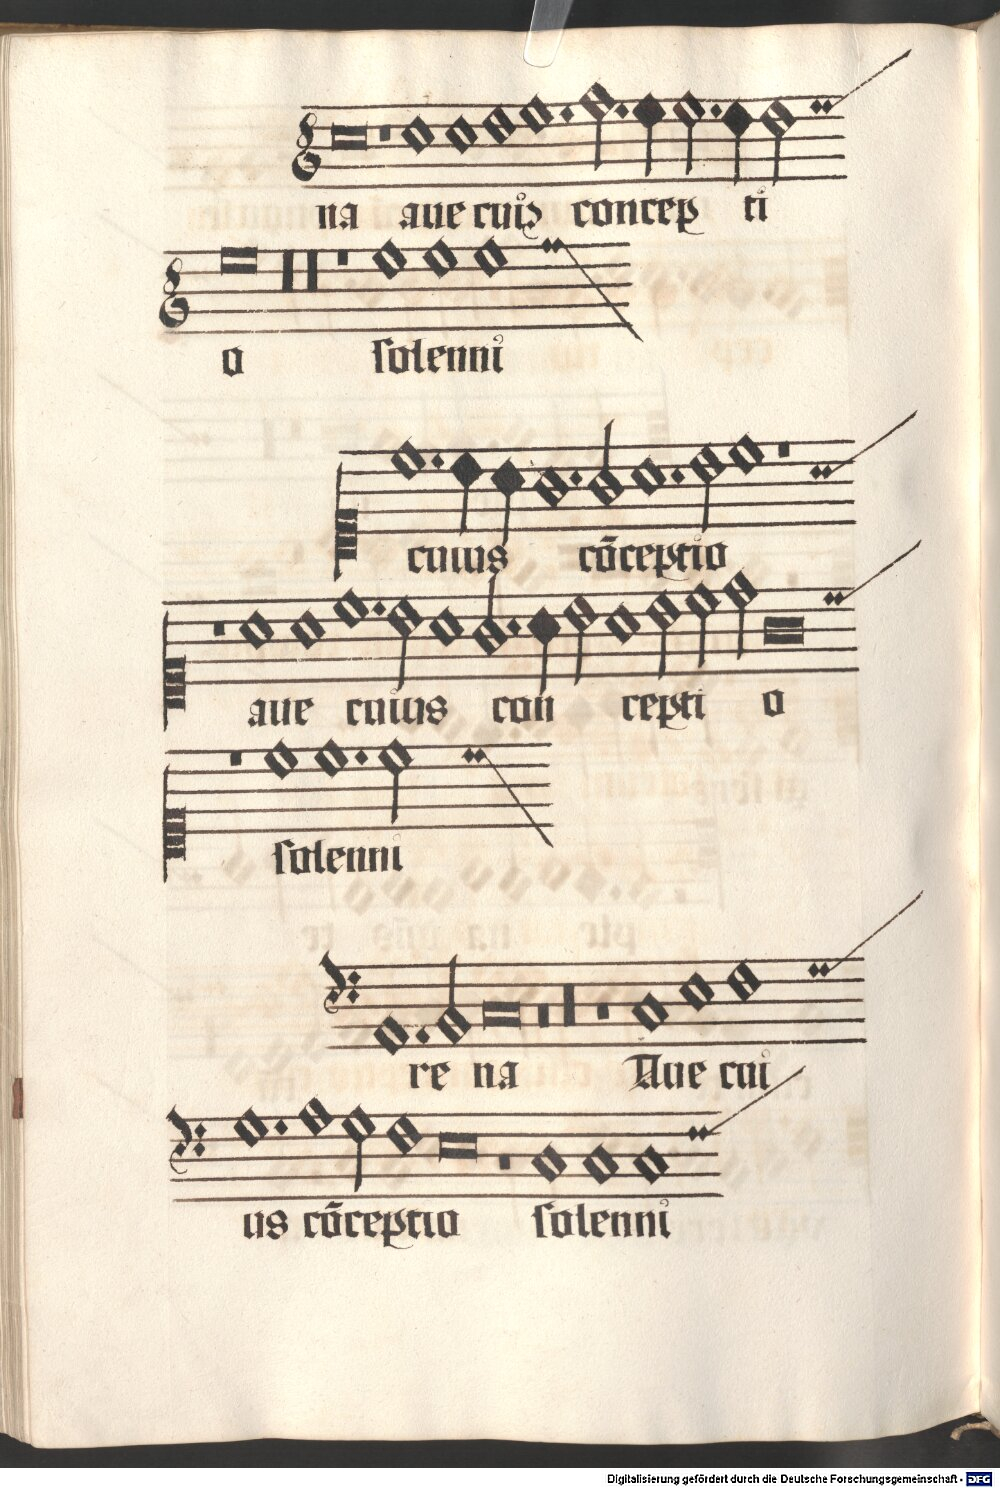 na aue cuiꝰ concep ti
o solenni
cuius cōceptio
aue cuius con cepti o
solenni
re na Aue cui
us cōceptio solenni
Digitalisierung gefördert durch die Deutsche Forschungsgemeinschaft - DFG